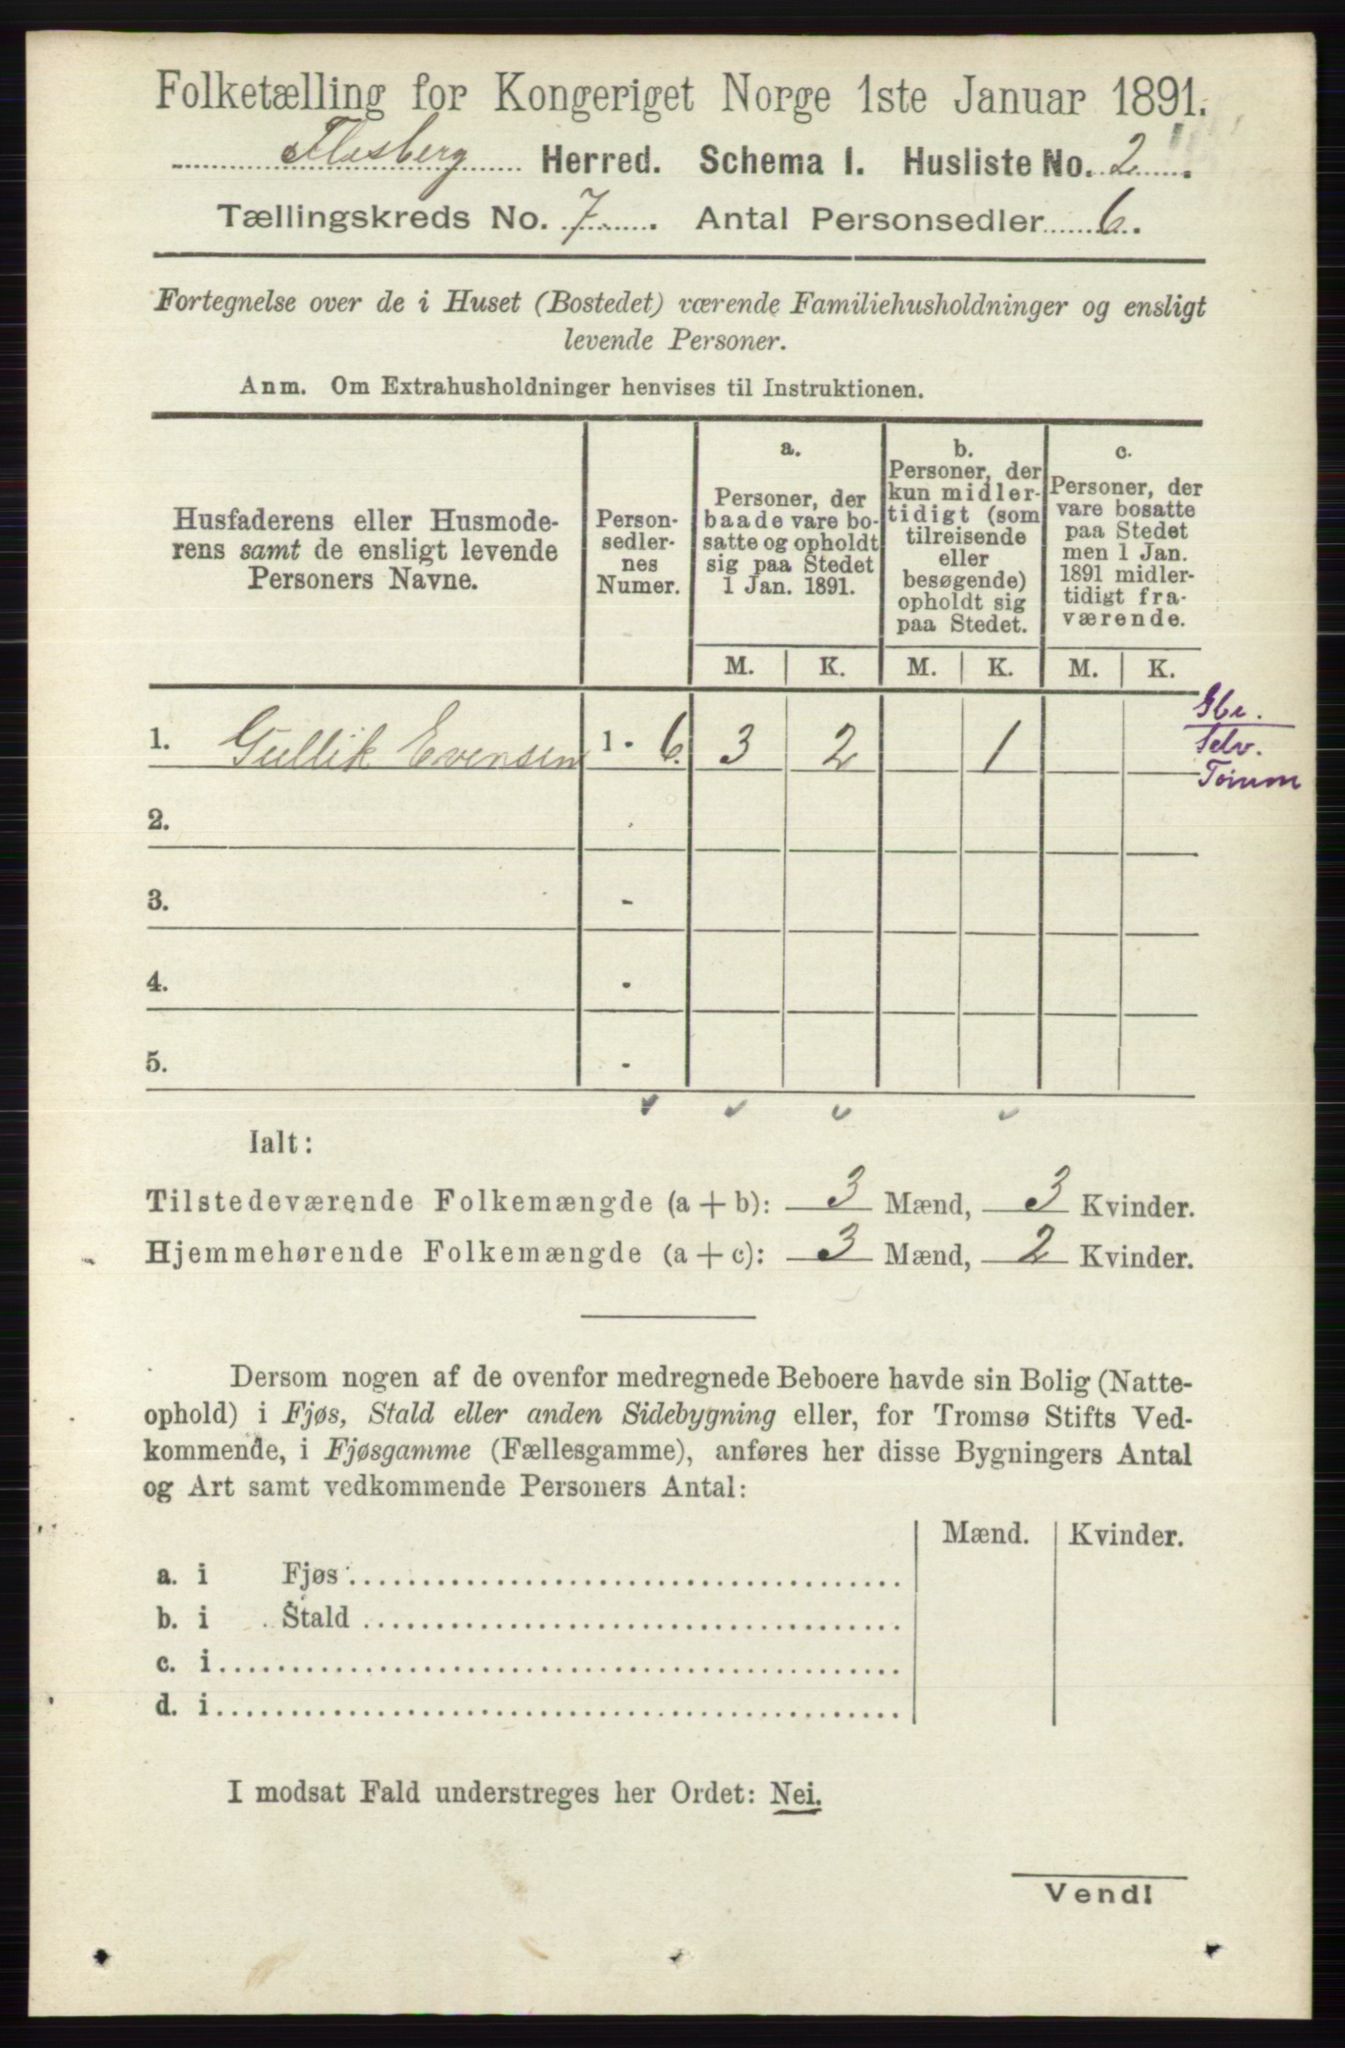 Folketælling for Kongeriget Norge 1ste Januar 1891.
Flesberg Herred. Schema 1. Husliste No. 2.
Tællingskreds No. 7. Antal Personsedler 6.
Fortegnelse over de i Huset (Bostedet) værende Familiehusholdninger og ensligt
levende Personer.
Anm. Om Extrahusholdninger henvises til Instruktionen.
Husfaderens eller Husmode-
rens samt de ensligt levende
Personers Navne.
Person-
sedler-
nes
Numer.
a.
Personer, der
baade vare bo-
satte og opholdt
sig paa Stedet
1 Jan. 1891.
b.
Personer, der
kun midler-
tidigt (som
tilreisende
eller
besøgende)
opholdt sig
paa Stedet.
c.
Personer, der
vare bosatte
paa Stedet
men 1 Jan.
1891 midler-
tidigt fra-
værende.
M. K. M. K. M. K.
1. Gullik Evensen 1 - 6. 3 2 1
Gbr.
Selv.
Tømm
2.
3. -
4. -
5. -
Ialt:
Tilstedeværende Folkemængde (a + b): 3 Mænd, 3 Kvinder.
Hjemmehørende Folkemængde (a + c): 3 Mænd, 2 Kvinder.
Dersom nogen af de ovenfor medregnede Beboere havde sin Bolig (Natte-
ophold) i Fjøs, Stald eller anden Sidebygning eller, for Tromsø Stifts Ved-
kommende, i Fjøsgamme (Fællesgamme), anføres her disse Bygningers Antal
og Art samt vedkommende Personers Antal:
Mænd. Kvinder.
a. i Fjøs
b. i Stald
c. i
d. i
I modsat Fald understreges her Ordet: Nei.
Vend!